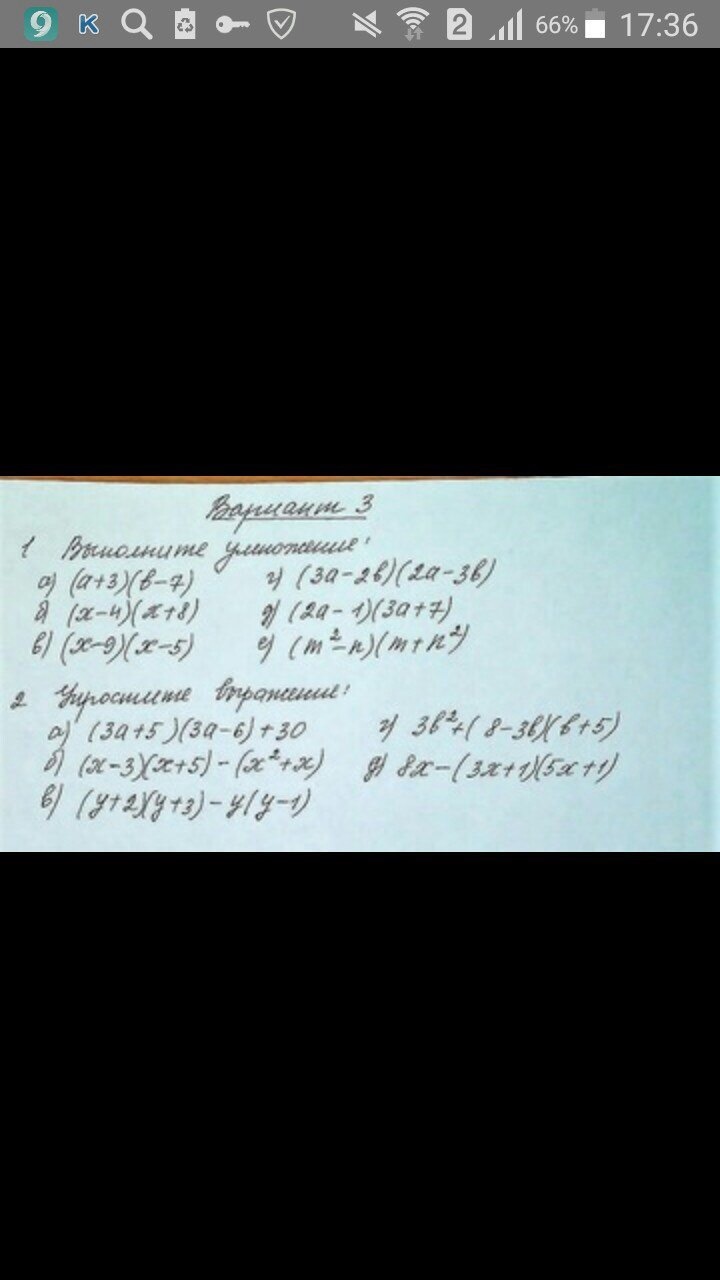 9 K 2 66% 17:36
Вариант 3
1 Выполните умножение:
а) (a+3)(b-7) г) (3a-2b)(2a-3b)
б) (x-4)(x+8) д) (2a-1)(3a+7)
в) (x-9)(x-5) е) (m²-n)(m+n²)
2 Упростите выражение:
а) (3a+5)(3a-6)+30 г) 3b²+(8-3b)(b+5)
б) (x-3)(x+5)-(x²+x) д) 8x-(3x+1)(5x+1)
в) (y+2)(y+3)-y(y-1)